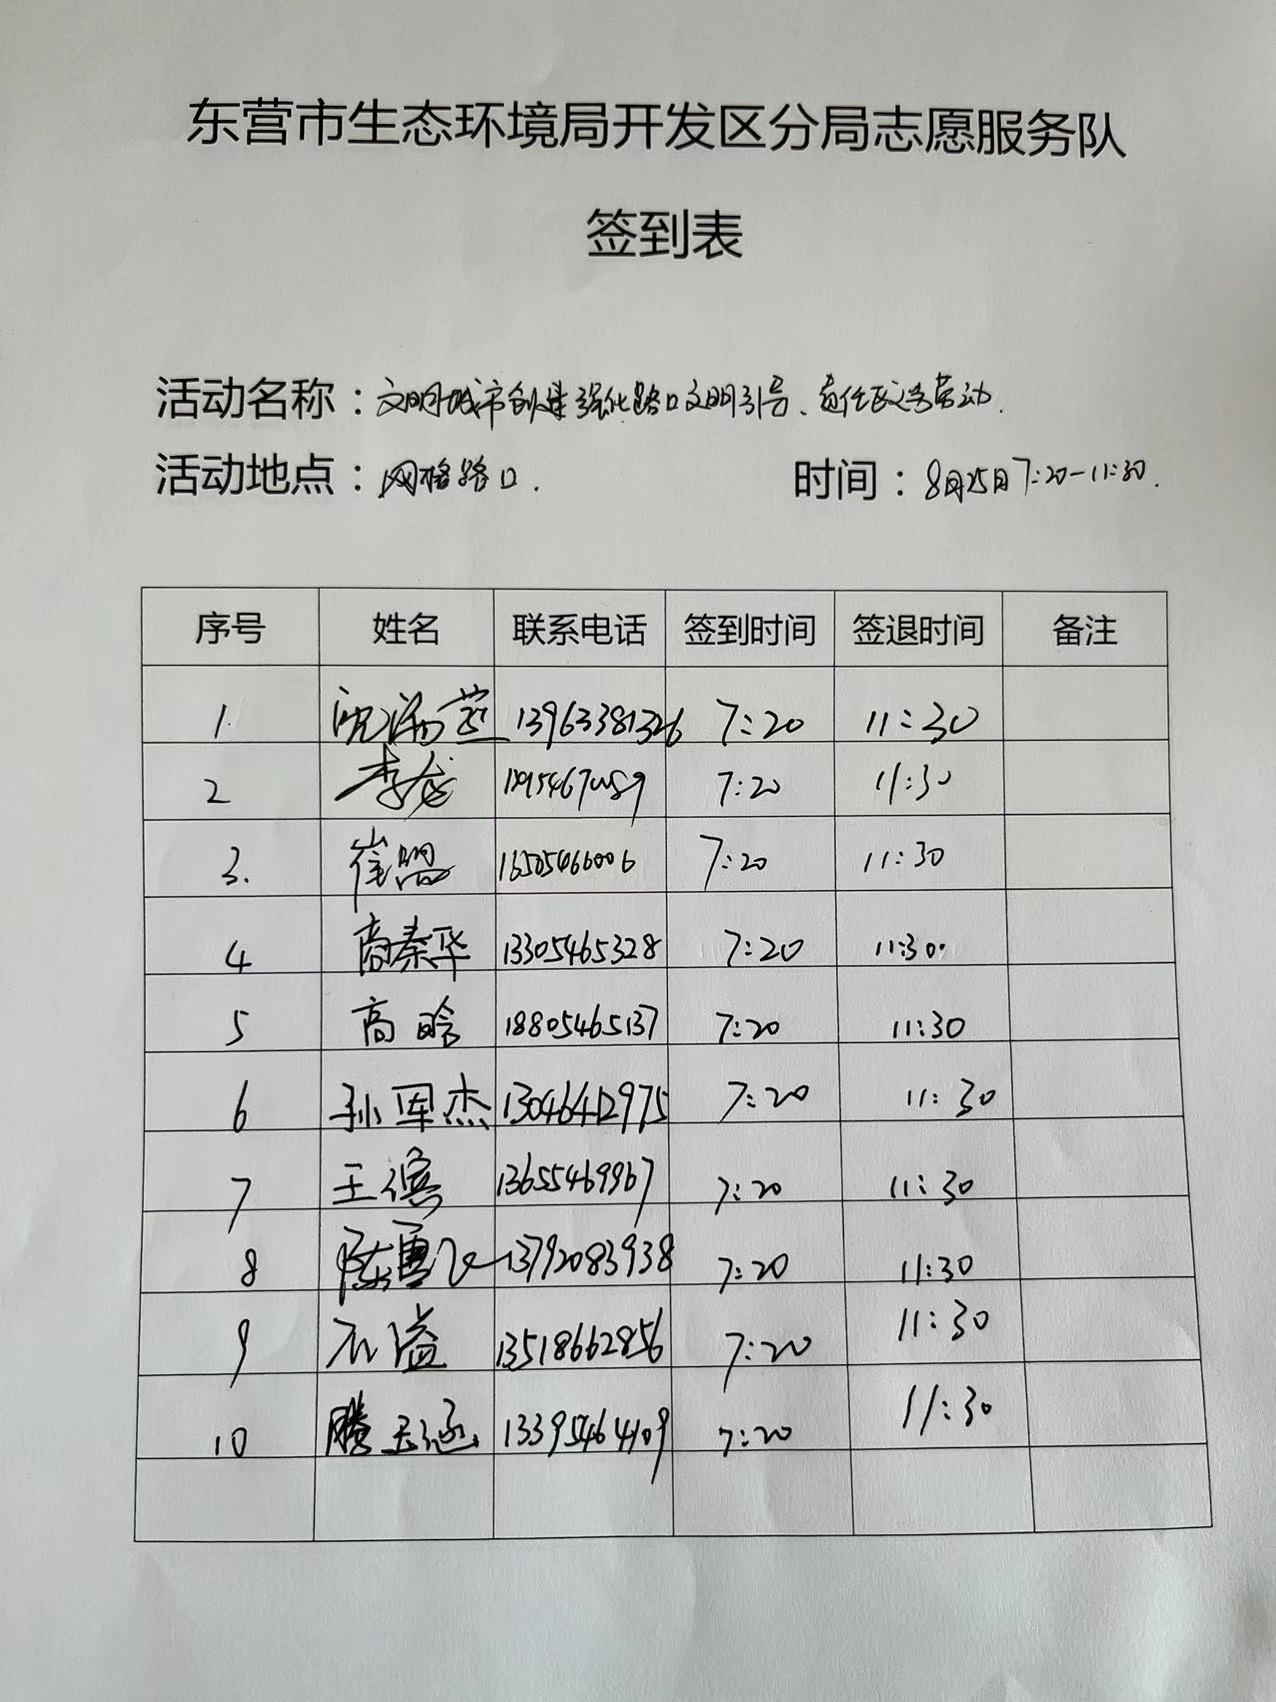 东营市生态环境局开发区分局志愿服务队
签到表
活动名称：文明城市创建强化路口文明引导、责任区义务劳动.
活动地点：网格路口. 时间：8月25日7:20-11:30.
序号 姓名 联系电话 签到时间 签退时间 备注
1. 13963381326 7:20 11:30
2 李龙 7:20 11:30
3. 崔盟 16505466006 7:20 11:30
4 商秦华 13305465328 7:20 11:30.
5 高晗 18805465137 7:20 11:30
6 孙军杰 13046412975 7:20 11:30
7 王 13655469967 7:20 11:30
8 陈 13792083938 7:20 11:30
9 石溢 13518662856 7:20 11:30
10 滕玉涵 13395464109 7:20 11:30